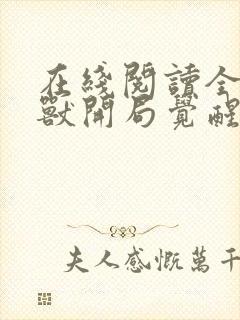 在綫閱讀全
獸開局覺醒
夫人感慨萬千